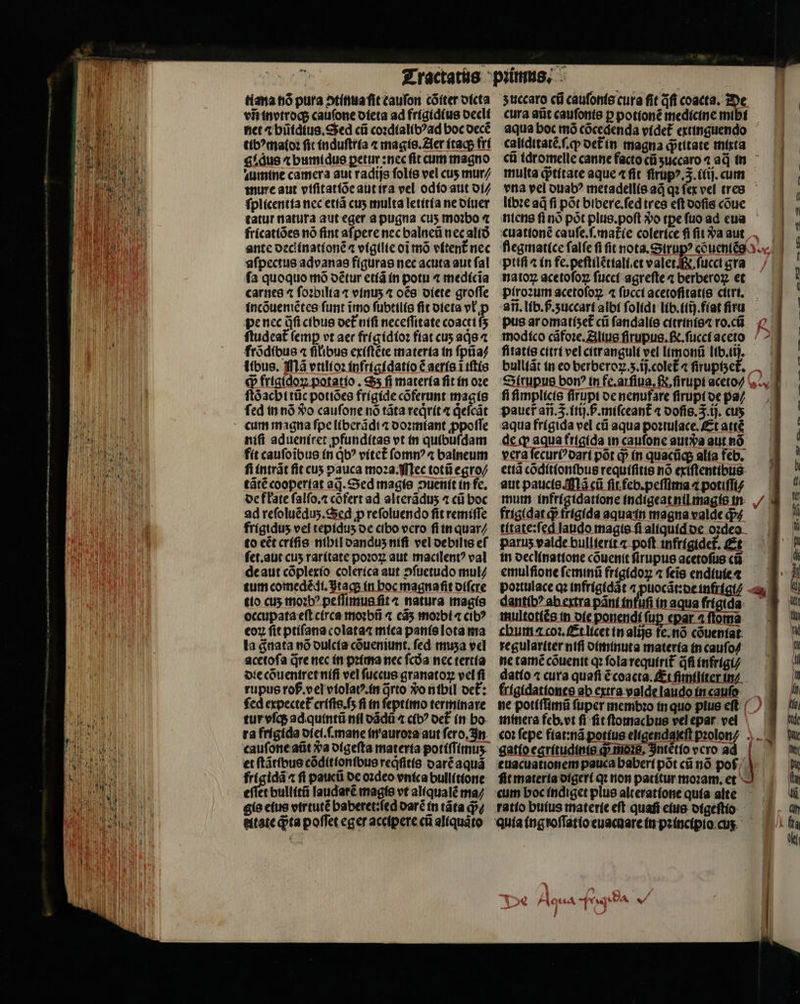 Tractatus primus.
tiana nō pura ↄtinua fit cauſon cōiter dicta
vñ invtroqꝫ cauſone dieta ad frigidius decli
net ⁊ hūidius. Sed cū cordialibꝰ ad hoc decē
tibꝰ maior fit induſtria ⁊ magis. Aer itaqꝫ fri
gidus ⁊ humidus petur: nec fit cum magno
lumine camera aut radijs ſolis vel cuꝫ mur/
mure aut viſitatiōe aut ira vel odio aut di/
ſplicentia nec etiā cuꝫ multa letitia ne diuer
tatur natura aut eger a pugna cuꝫ morbo ⁊
fricatiōes nō fint aſpere nec balneū nec aliō
ante declinationē ⁊ vigilie oī mō vitent̄ nec
aſpectus ad vanas figuras nec acuta aut ſal
ſa quoquo mō dētur etiā in potu ⁊ medicīa
carnes ⁊ ſorbilia ⁊ vinuꝫ ⁊ oēs diete groſſe
incōueniētes ſunt imo ſubtilis fit dieta vl̓ ꝓ
pe nec q̄ſi cibus det̄ niſi neceſſitate coacti ſꝫ
ſtudeat̄ ſemp vt aer frigidior fiat cuꝫ aq̄s ⁊
frōdibus ⁊ ſil̓ibus exiſtēte materia in ſpūa/
libus. Nā vtilior infrigidatio ē aeris ī iſtis
q̄ꝫ frigidoꝝ potatio. Sꝫ ſi materia fit in ore
ſtōachi tūc potiōes frigide cōferunt magis
ſed in nō ꝟo cauſone nō tāta req̄rit̄ ⁊ q̄eſcāt
cum magna ſpe liberādi ⁊ dormiant ꝓpoſſe
niſi adueniret ꝓfunditas vt in quibuſdam
fit cauſoibus in q̄bꝰ vitet̄ ſomnꝰ ⁊ balneum
ſi intrāt fit cuꝫ pauca mora. Nec totū egro/
tātē cooperiat aq̄. Sed magis ↄuenit in fe.
de flate ſalſo. ⁊ cōfert ad alterāduꝫ ⁊ cū hoc
ad reſoluēduꝫ. Sed ꝓ reſoluendo fit remiſſe
frigiduꝫ vel tepiduꝫ de cibo vero ſi in quar/
to eēt criſis nihil danduꝫ niſi vel debilis eſ
ſet. aut cuꝫ raritate pororꝝ aut macilentꝰ val
de aut cōplexio colerica aut ↄſuetudo mul/
tum comedēdi. Itaqꝫ in hoc magna fit diſcre
tio cuꝫ morbꝰ peſſimus fit ⁊ natura magis
occupata eſt circa morbū ⁊ cāꝫ morbi ⁊ cibꝰ
eoꝝ fit ptiſana colata ⁊ mica panis lota ma
la g̈nata nō dulcia cōueniunt. ſed muꝫa vel
acetoſa q̄re nec in prima nec ſcd̄a nec tertia
die cōueniret niſi vel ſuccus granatoꝝ vel ſi
rupus roſ. vel violatꝰ. in q̄rto ꝟo nihil det̄:
ſed expectet̄ criſis. ſꝫ ſi in ſeptimo terminare
tur vſqꝫ ad quintū nil dādū ⁊ cibꝰ det̄ in ho
ra frigida diei. ſ. mane in aurora aut ſero. In
cauſone aūt ꝟa digeſta materia potiſſimuꝫ
et ſtātibus cōditionibus req̄ſitis darē aquā
frigidā ⁊ ſi paucū de ordeo vnica bullitione
eſſet bullitū laudarē magis vt aliqualē ma/
gis eius virtutē haberet: ſed darē in tāta q̄ꝫ/
titate q̄ꝫta poſſet eger accipere cū aliquāto
zuccaro cū cauſonis cura fit q̄ſi coacta. De
cura aūt cauſonis ꝑ potionē medicine mihi
aqua hoc mō cōcedenda videt̄ extinguendo
caliditatē. ſ. ꝙ det̄ in magna q̄ꝫtitate mixta
cū idromelle canne facto cū zuccaro ⁊ aq̄ in
multa q̄ꝫtitate aque ⁊ fit ſirupꝰ. ℥. iiij. cum
vna vel duabꝰ metadellis aq̄ qꝛ ſex vel tres
libre aq̄ ſi pōt bibere. ſed tres eſt doſis cōue
niens ſi nō pōt plus. poſt ꝟo tpe ſuo ad eua
cuationē cauſe. ſ. mat̄ie colerice ſi fit ꝟa aut
flegmatice ſalſe ſi fit nota. Sirupꝰ cōueniēs
ptiſi ⁊ in fe. peſtilētiali. et valet. ℞. ſucci gra
natoꝝ acetoſoꝝ ſucci agreſte ⁊ berberoꝝ et
piroꝝum acetoſoꝝ ⁊ ſucci acetoſitatis citri.
añ. lib. ß. zuccari albi ſolidi lib. iiij. fiat ſiru
pus aromatiꝫet̄ cū ſandalis citrinis ⁊ ro. cū
modico cāfore. Alius ſirupus. ℞. ſucci aceto
ſitatis citri vel citranguli vel limonū lib. iij.
bulliāt in eo berberoꝝ. ℥. ij. colet̄ ⁊ ſirupiꝫet̄.
Sirupus bonꝰ in fe. arſiua. ℞. ſirupi aceto/
ſi ſimplicis ſirupi de nenufare ſirupi de pa/
pauer̄ añ. ℥. iiij. ß. miſceant̄ ⁊ doſis. ℥. ij. cuꝫ
aqua frigida vel cū aqua portulace. Et attē
de ꝙ aqua frigida in cauſone aut ꝟa aut nō
vera ſecuriꝰ dari pōt q̄ꝫ in quacūqꝫ alia feb.
etiā cōditionibus requiſitis nō exiſtentibus
aut paucis. Nā cū fit feb. peſſima ⁊ potiſſi/
mum infrigidatione indigeat nil magis in
frigidat q̄ꝫ frigida aqua in magna valde q̄ꝫ/
titate: ſed laudo magis ſi aliquid de ordeo
paruꝫ valde bullierit ⁊ poſt infrigidet̄. Et
in declinatione cōuenit ſirupus acetoſus cū
emulſione ſeminū frigidoꝝ ⁊ ſeis endiuie ⁊
portulace qꝛ infrigidāt ⁊ ꝓuocāt: de infrigi/
dantibꝰ ab extra pāni infuſi in aqua frigida
multotiēs in die ponendi ſup epar ⁊ ſtoma
chum ⁊ cor. Et licet in alijs fe. nō cōueniat
regulariter niſi diminuta materia in cauſo/
ne tamē cōuenit qꝛ ſola requirit̄ q̄ſi infrigi/
datio ⁊ cura quaſi ē coacta. Et ſimiliter in/
frigidationes ab extra valde laudo in cauſo
ne potiſſimū ſuper membro in quo plus eſt
minera feb. vt ſi fit ſtomachus vel epar vel
cor ſepe fiat: nā potius eligenda eſt prolon/
gatio egritudinis q̄ꝫ mors. Intētio vero ad
euacuationem pauca haberi pōt cū nō poſ/
ſit materia digeri qꝛ non patitur moram. et
cum hoc indiget plus alteratione quia alte
ratio huius materie eſt quaſi eius digeſtio
quia ingroſſatio euacuare in principio cuꝫ
De Aqua frigida ✓